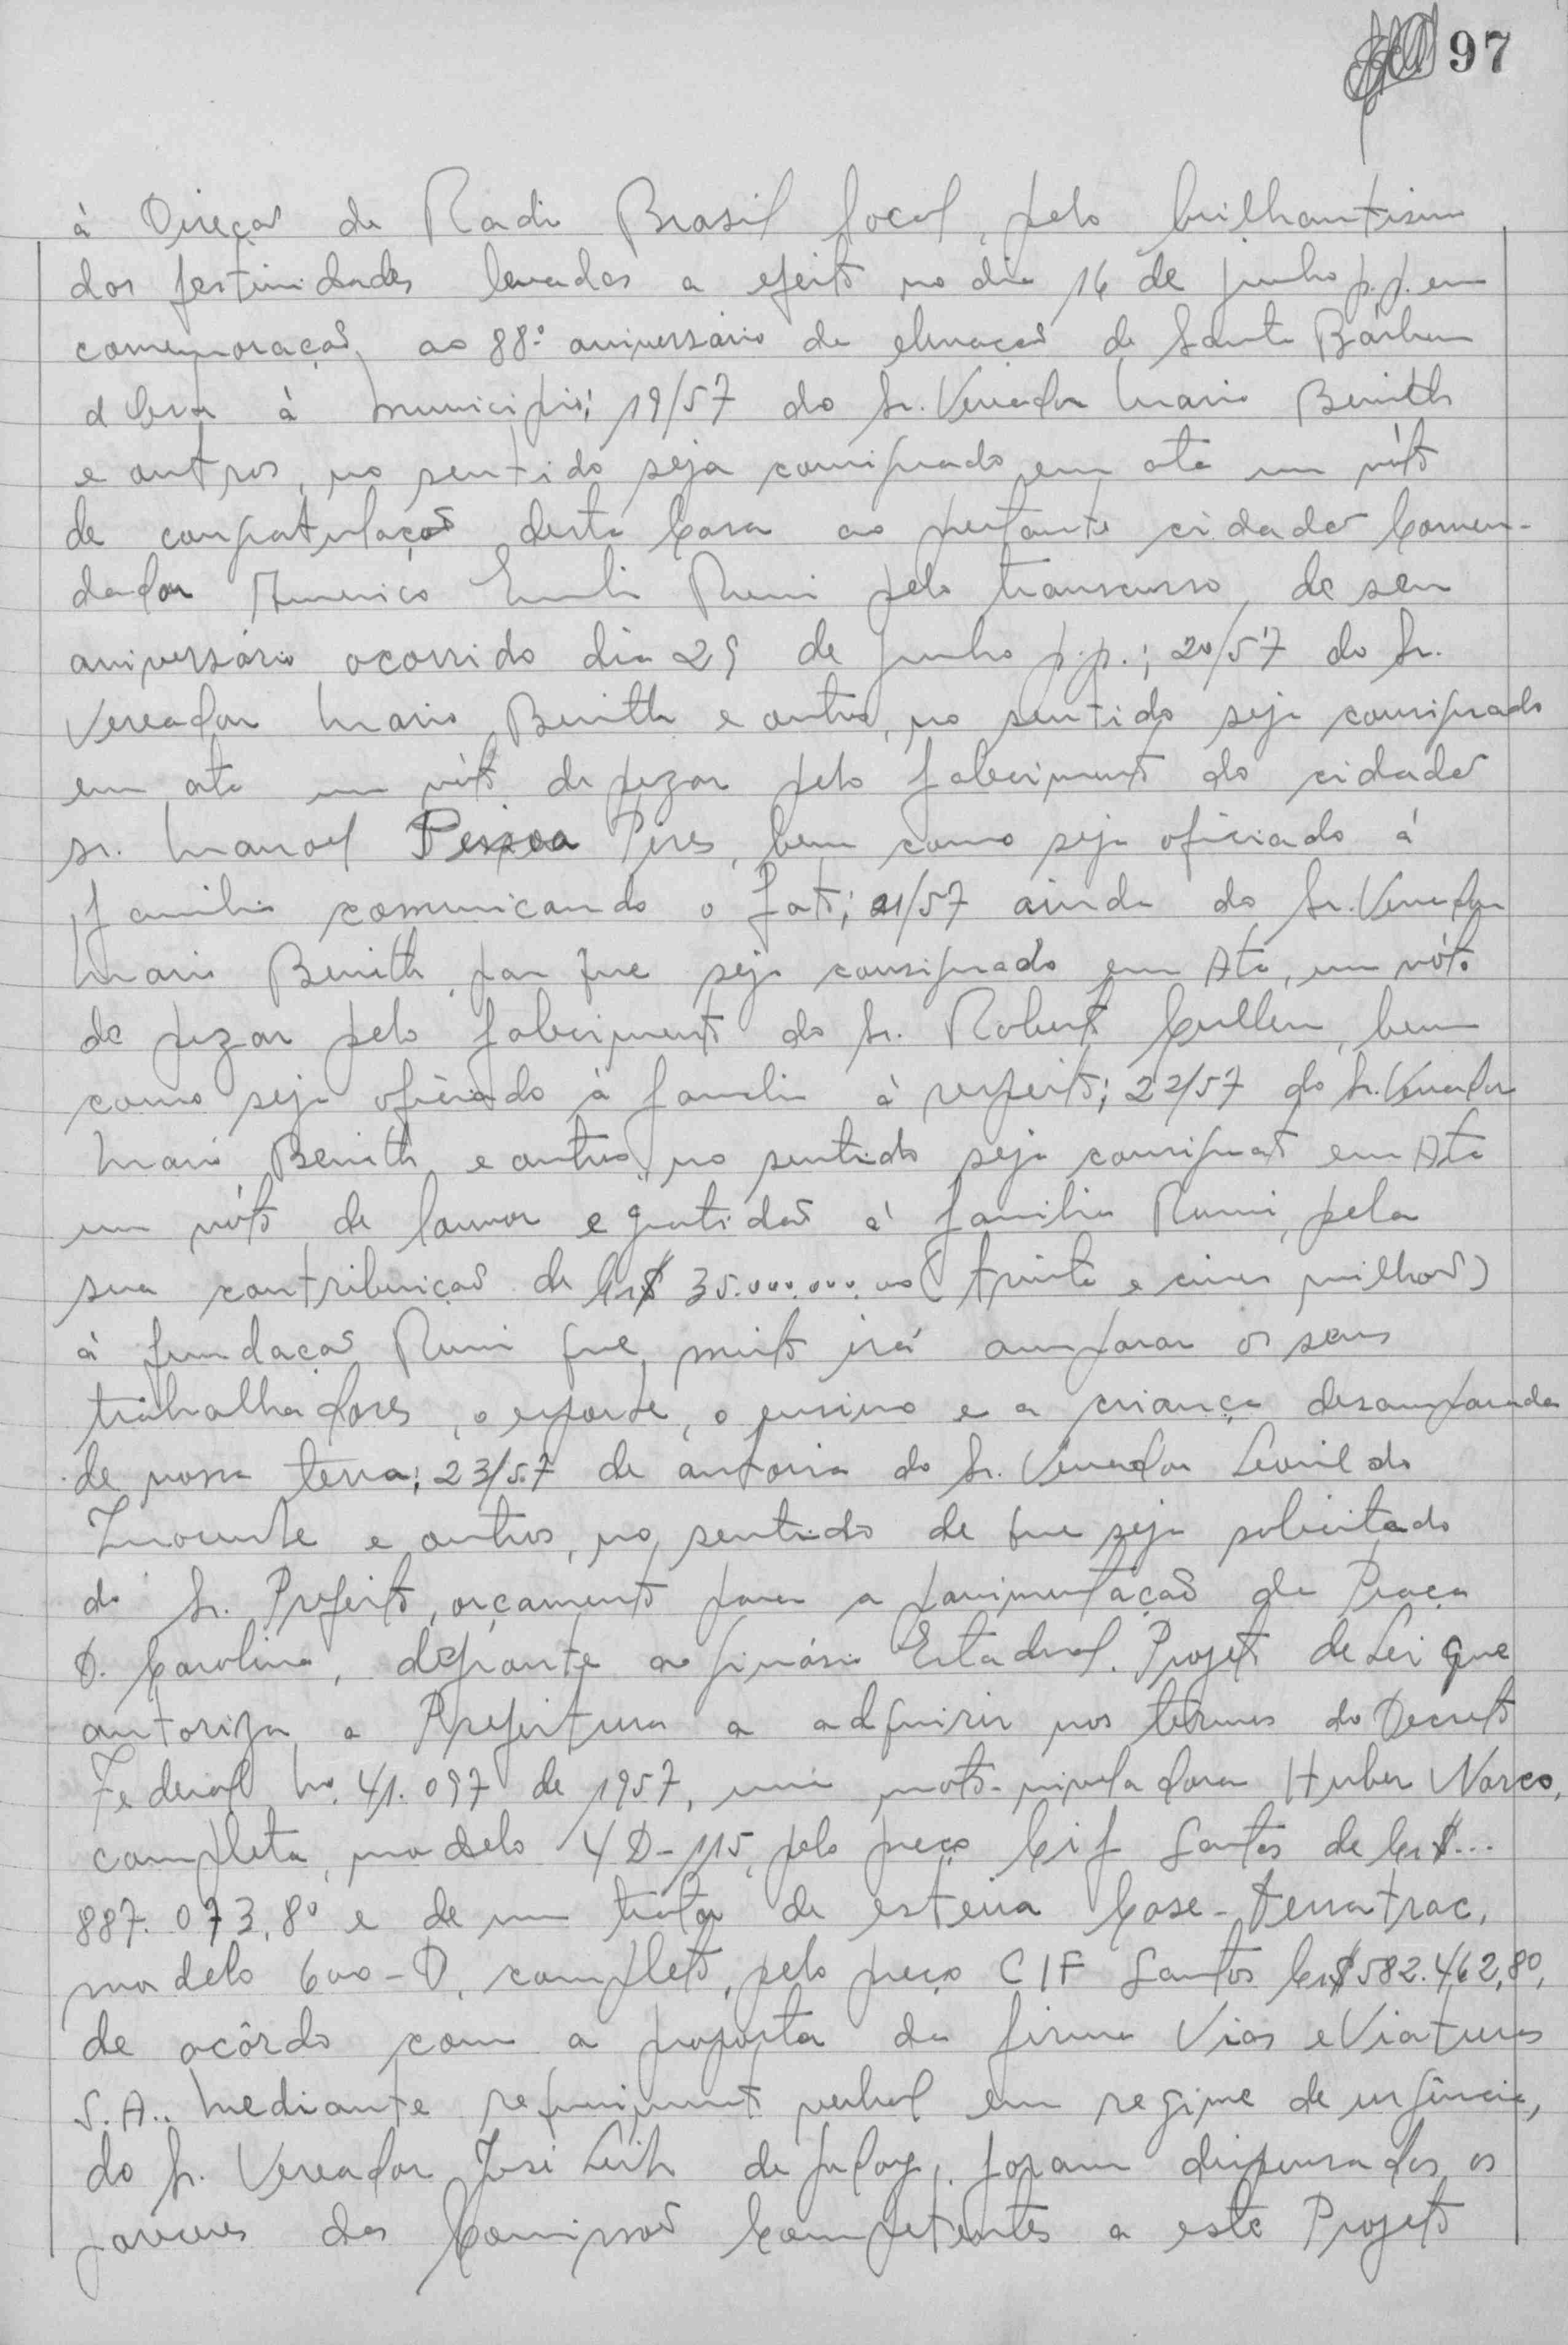 97
à Direção da Radio Brasil local, pelo brilhantismo
das festividades levadas a efeito no dia 16 de junho p.p. em
comemoração ao 88º aniversário de elevação de Santa Bárbara
d'Oeste à Municipio; 19/57 do Sr. Vereador Mario Benith
e outros, no sentido seja consignado em ata um vóto
de congratulação desta Casa ao prestante cidadão Comen-
dador Americo Emilio Romi pelo transcurso, de seu
aniversário ocorrido dia 29 de junho p.p.; 20/57 do Sr.
Vereador Mario Benith e outros, no sentido seja consignado
em ata um vóto de pezar pelo falecimento do cidadão
sr. Manoel Pessoa Pires, bem como seja oficiado á
familia comunicando o fato; 21/57 ainda do Sr. Vereador
Mario Benith, par que seja consignado em Ata, um vóto
de pezar pelo falecimento do Sr. Robert Cullen, bem
como seja oficiado à familia à respeito; 22/57 do Sr. Vereador
Mario Benith e outros, no sentido seja consignado em Ata
um vóto de louvor e gratidão á familia Romi, pela
sua contribuição de Cr$ 35.000.000,00 (trinta e cinco milhões)
à fundação Romi que muito irá amparar os seus
trabalhadores, o esporte, o ensino e a criança desamparada
de nossa terra; 23/57 de autoria do Sr. Vereador Leonildo
e outros, no sentido de que seja solicitado
do Sr. Prefeito, orçamento para a pavimentação da Praça
D. Carolina, defronte ao ginásio Estadual. Projeto de Lei que
autoriza a Prefeitura a adquirir nos têrmos do Decreto
Federal No. 41.097 de 1957, uma moto-niveladora Huber Warco,
completa, modelo 4D-115, pelo preço Cif Santos de Cr$...
887.073,80 e de um trator de esteira Case-Terratrac,
modelo 600-D, completo, pelo preço CIF Santos Cr$ 582.462,80,
de acôrdo com a proposta da firma Vias e Viaturas
S.A.. Mediante requerimento verbal em regime de urgência,
do Sr. Vereador José Leite de Godoy, foram dispensados os
pareceres das Comissões Competentes a este Projeto